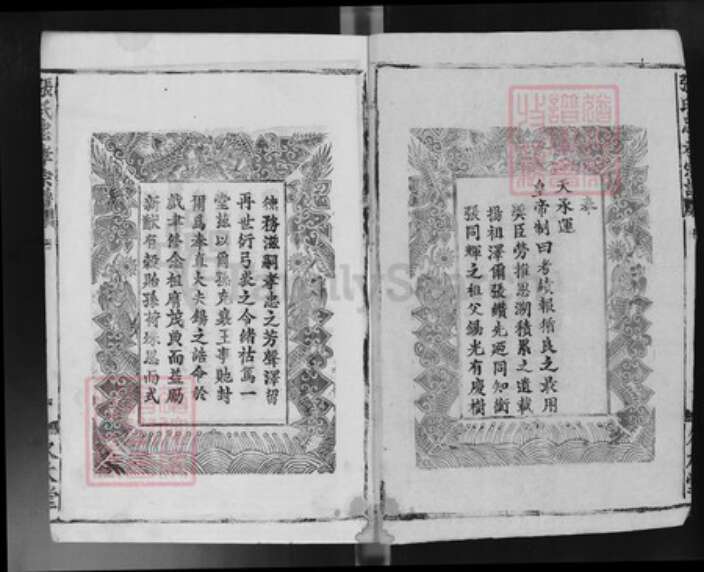 奉
天承運
皇帝制曰考績報循良之最用
奨臣勞推恩溯積累之遺載
揚祖澤爾張纘先廼同知銜
張同輝之祖父錫光有慶樹
德務滋嗣孝忠之芳聲澤留
再世衍弓裘之令緒祜篤一
堂兹以爾孫克襄王事貤封
爾爲奉直大夫錫之誥命於
戲聿修念祖膺茂典而益勵
新猷有穀貽孫荷殊恩而式
張氏忠孝宗譜
FamilySearch